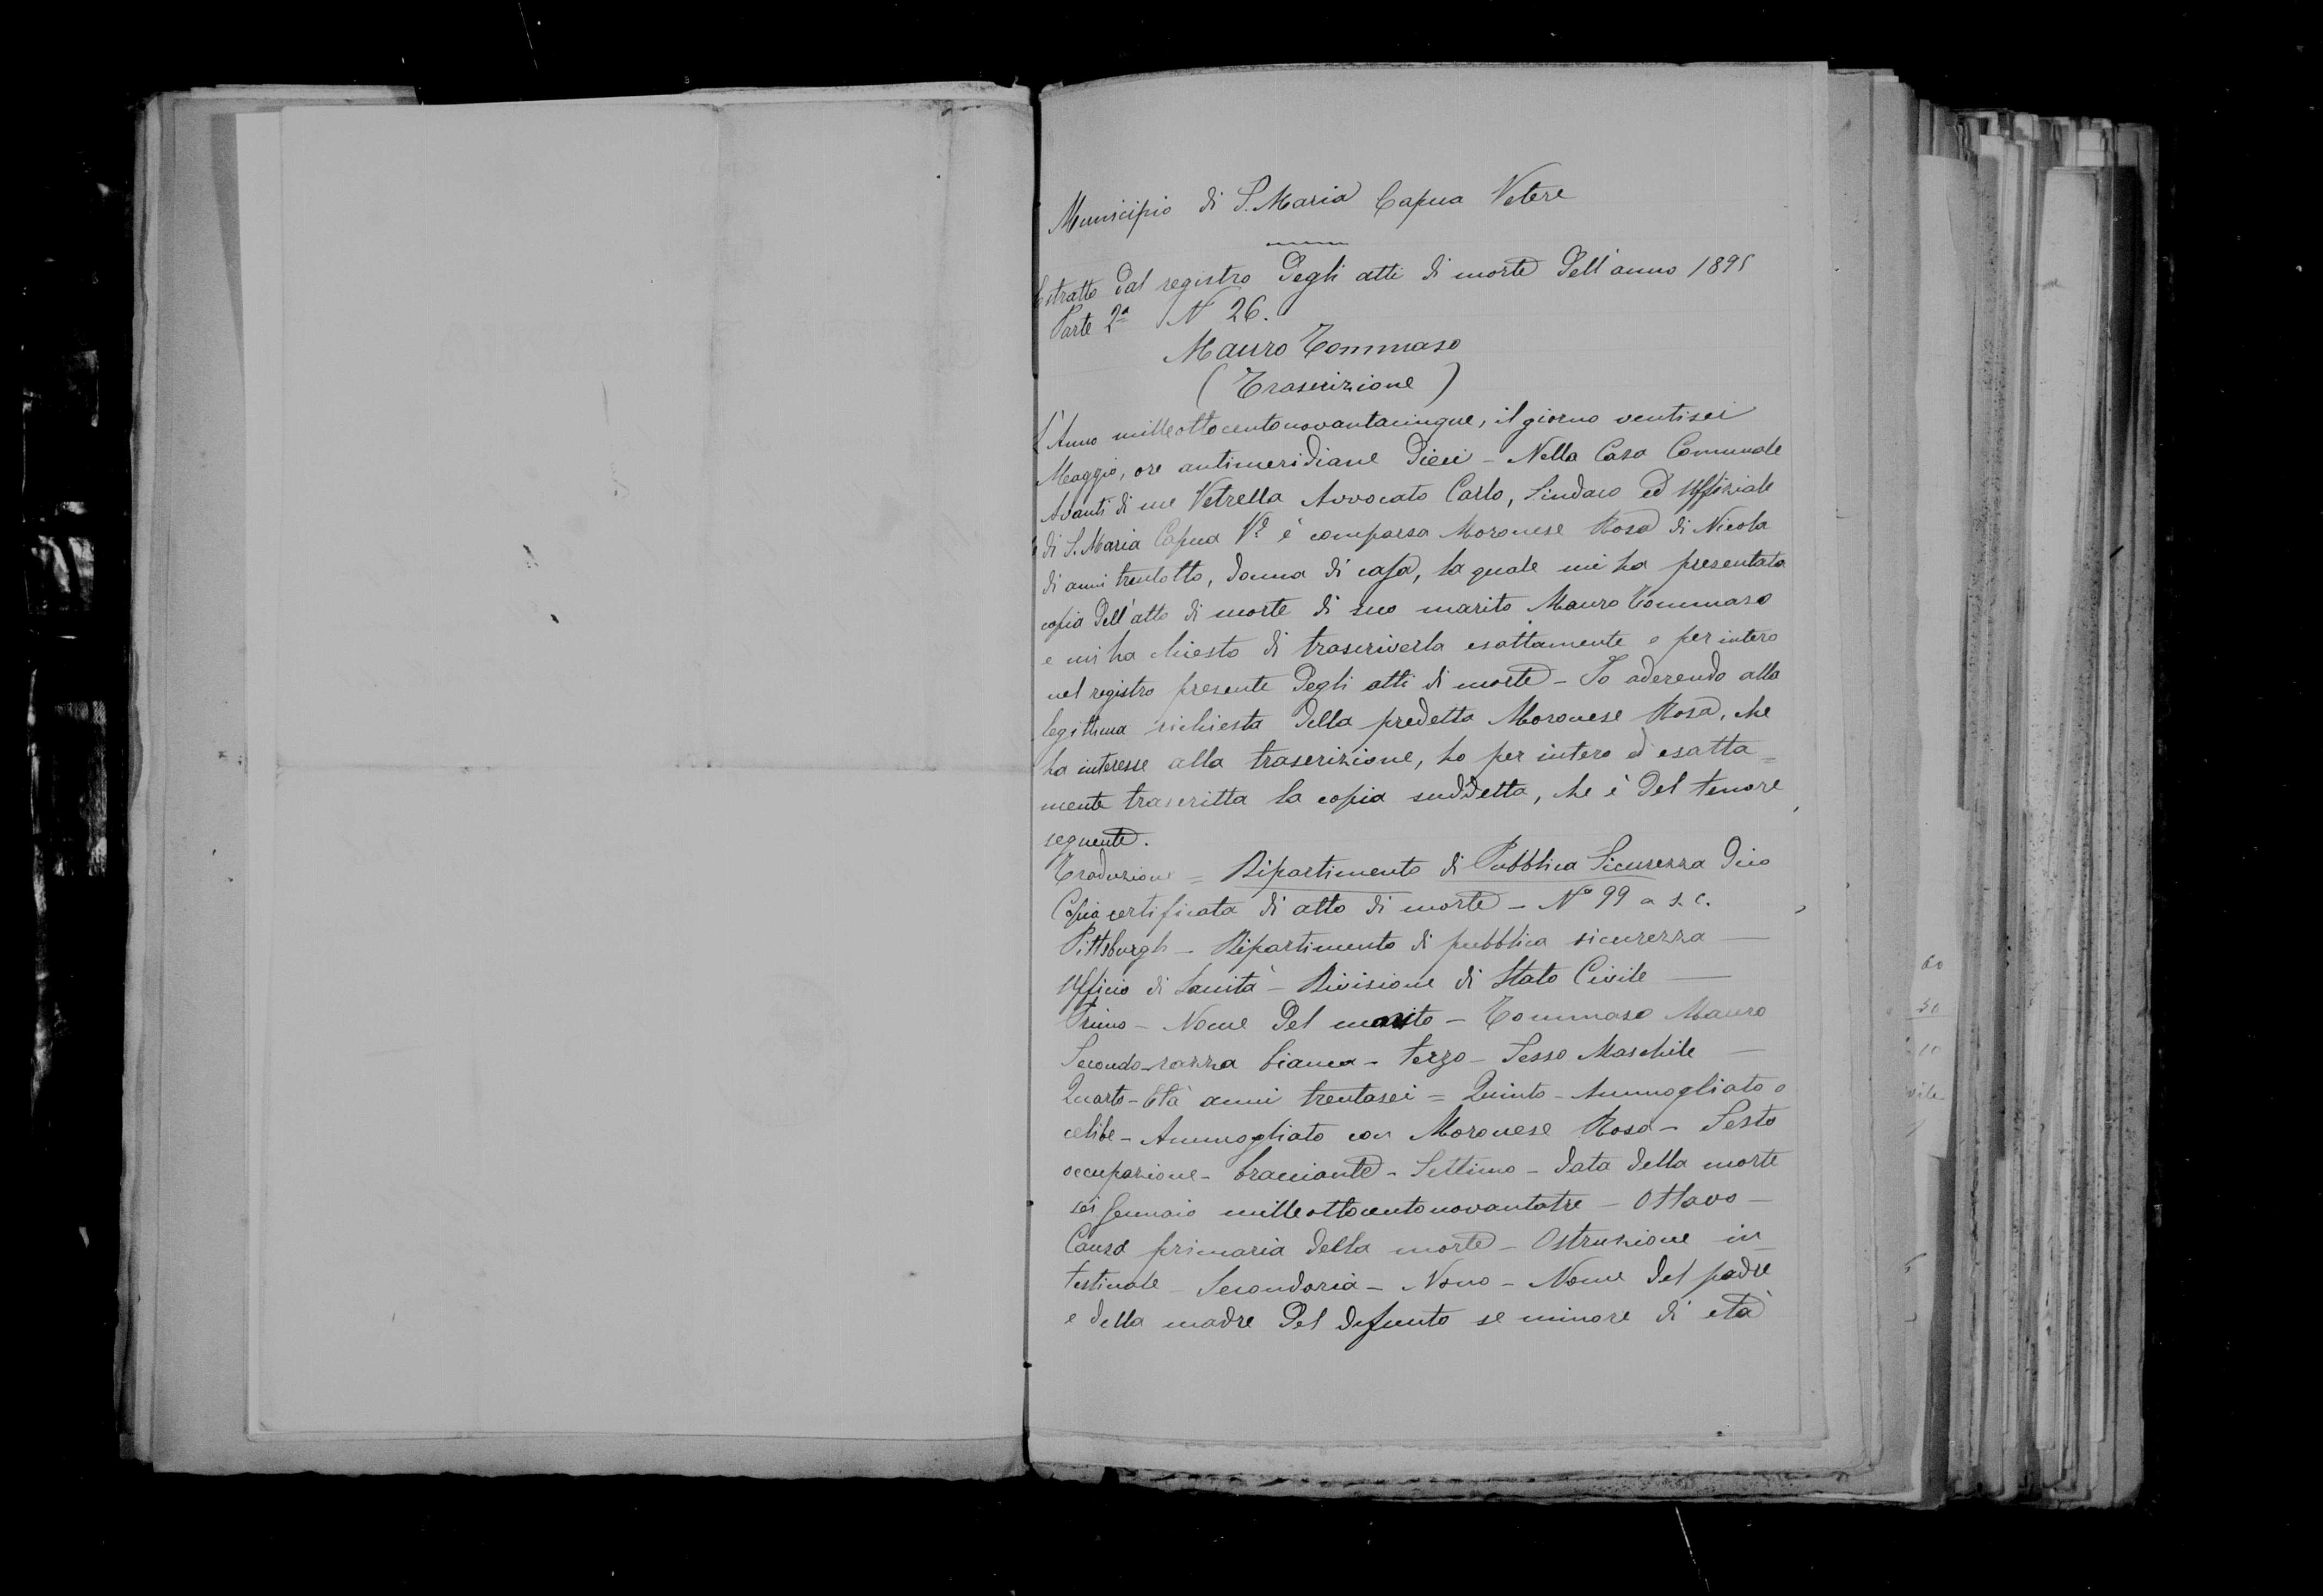 Municipio di S. Maria Capua Vetere
Estratto dal registro degli atti di morte dell'anno 1895
Parte 2ª N 26.
Mauro Tommaso
(Trascrizione)
L'Anno milleottocentonovantacinque, il giorno ventisei
Maggio, ore antimeridiane dieci - Nella Casa Comunale
Avanti di me Vetrella Avvocato Carlo, Sindaco ed Uffiziale
di S. Maria Capua Vᵉ è comparsa Moronese Rosa di Nicola
di anni trentotto, donna di casa, la quale mi ha presentata
copia dell'atto di morte di suo marito Mauro Tommaso
e mi ha chiesto di trascriverla esattamente e per intero
nel registro presente degli atti di morte - Io aderendo alla
legittima richiesta della predetta Moronese Rosa, che
ha interesse alla trascrizione, ho per intero ed esatta=
mente trascritta la copia suddetta, che è del tenore
seguente.
Traduzione = Dipartimento di Pubblica Sicurezza
Copia certificata di atto di morte - Nº 99 a s. c.
Pittsburgh - Dipartimento di pubblica sicurezza —
Ufficio di Sanità - Divisione di Stato Civile —
Primo - Nome del marito - Tommaso Mauro
Secondo - razza bianca - terzo - Sesso Maschile —
Quarto - Età anni trentasei = Quinto - Ammogliato o
celibe - Ammogliato con Moronese Rosa - Sesto
occupazione - bracciante - Settimo - data della morte
sei Gennaio milleottocentonovantatre - Ottavo -
Causa primaria della morte - Ostruzione in
testinale - Secondaria - Nono - Nome del padre
e della madre del defunto se minore di età
60
50
10